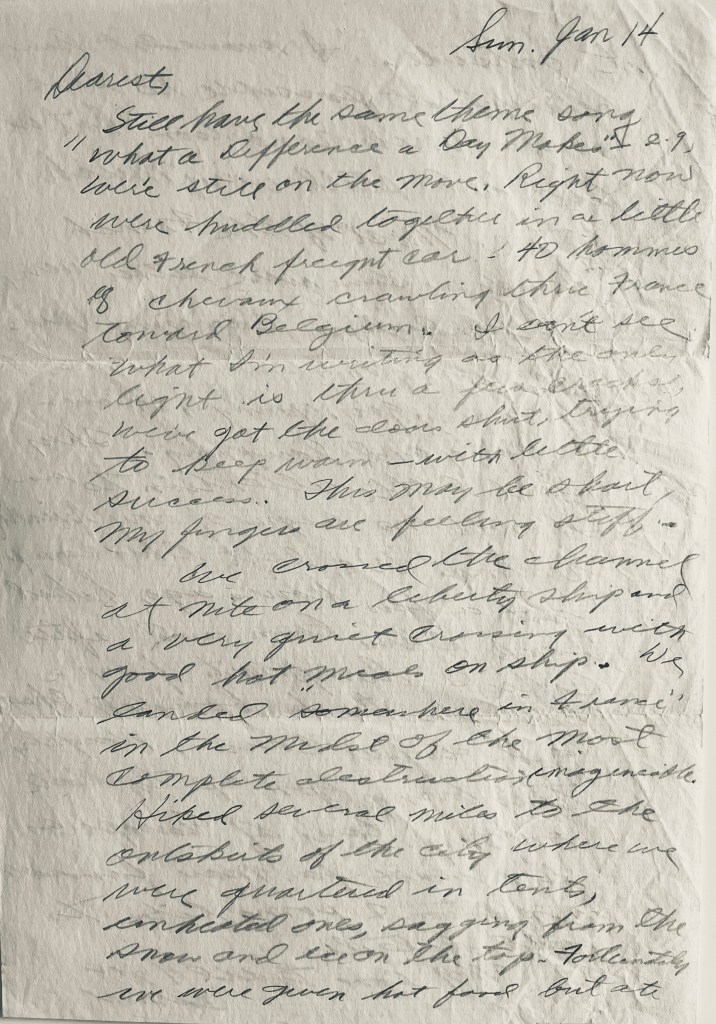 Sun. Jan 14
Dearest,
Still have the same theme song
"What a Difference a Day Makes" - e.g.
we're still on the move. Right now
we're huddled together in a little
old French freight car - 40 hommes
8 chevaux crawling thru France
toward Belgium. I can't see
what I'm writing as the only
light is thru a few cracks,
we've got the doors shut, trying
to keep warm - with little
success. This may be short,
my fingers are feeling stiff -
We crossed the channel
at nite on a liberty ship and
a very quiet crossing with
good hot meals on ship. We
landed "somewhere in France"
in the midst of the most
complete destruction imagineable.
Hiked several miles to the
outskirts of the city where we
were quartered in tents,
unheated ones, sagging from the
snow and ice on the top. Fortunately
we were given hot food but ate